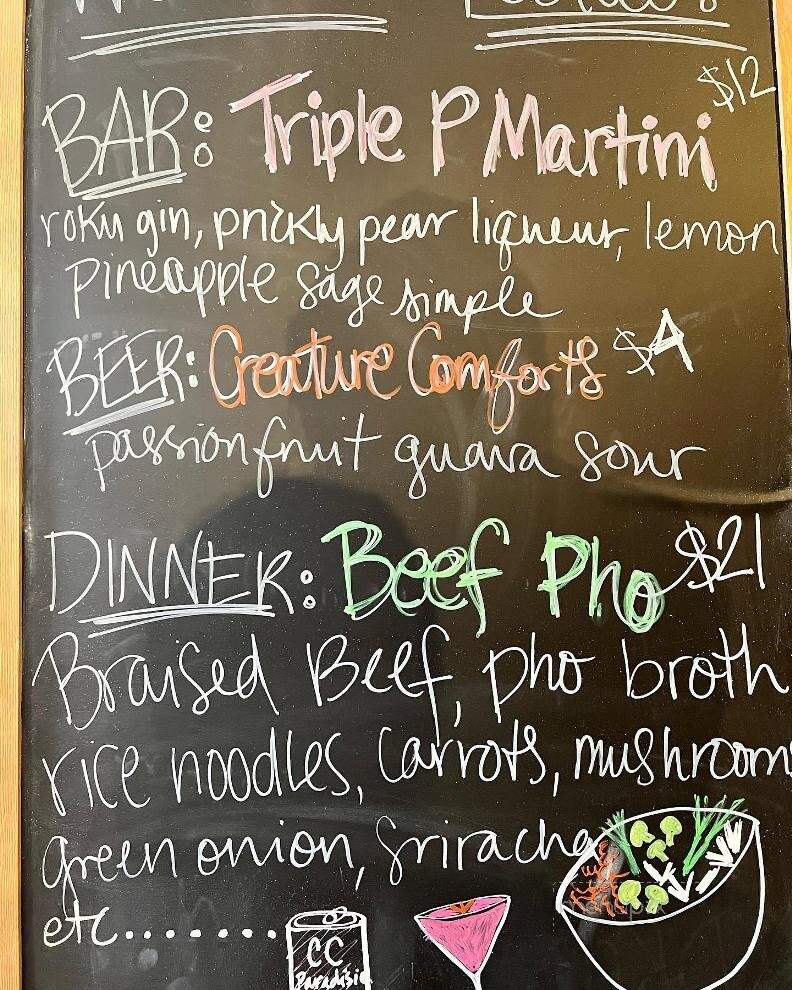 BAR: Triple P Martini $12
roku gin, prickly pear liqueur, lemon
pineapple sage simple
BEER: Creature Comforts $4
passionfruit guava sour
DINNER: Beef Pho $21
Braised Beef, pho broth
rice noodles, carrots, mushrooms
green onion, sriracha
etc.......
CC
Paradisio